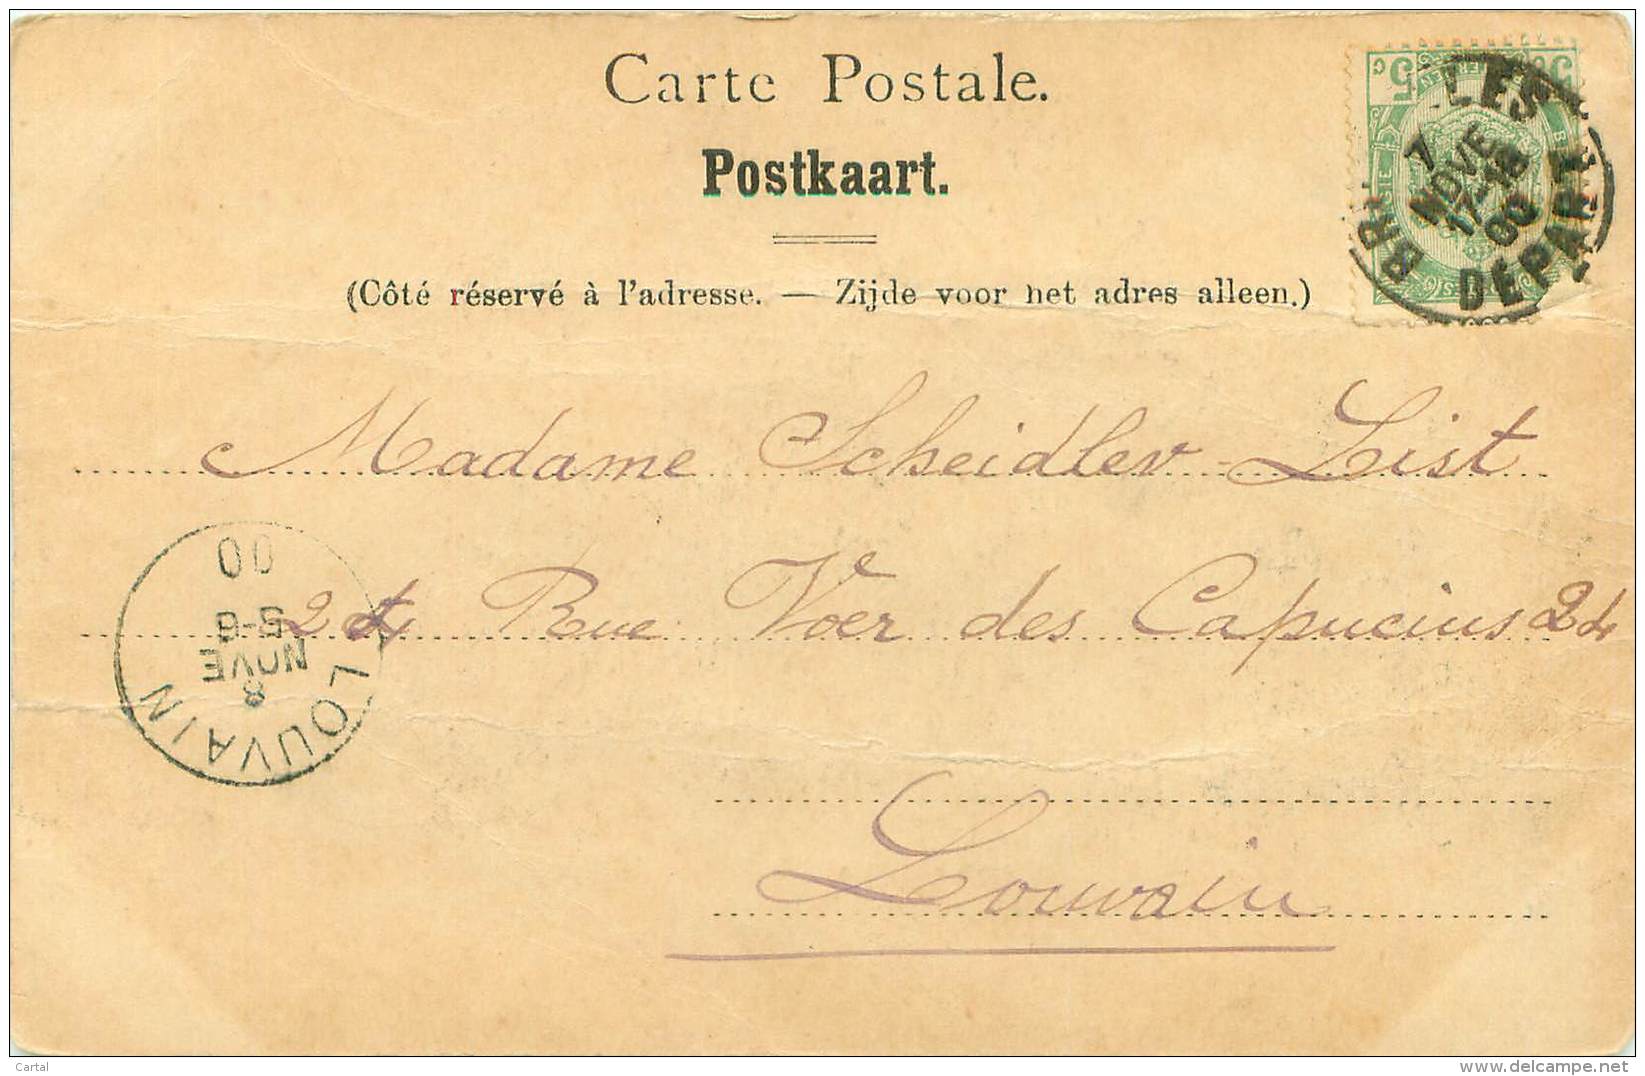 Carte Postale.
Postkaart.
(Côté réservé à l'adresse. — Zijde voor het adres alleen.)
BRUXELLES
7
NOVE
17-18
00
DÉPART
5 c
Madame Scheidler-List
24 Rue Voer des Capucins 24
Louvain
LOUVAIN
8
NOVE
5-6
00
Cartal
www.delcampe.net